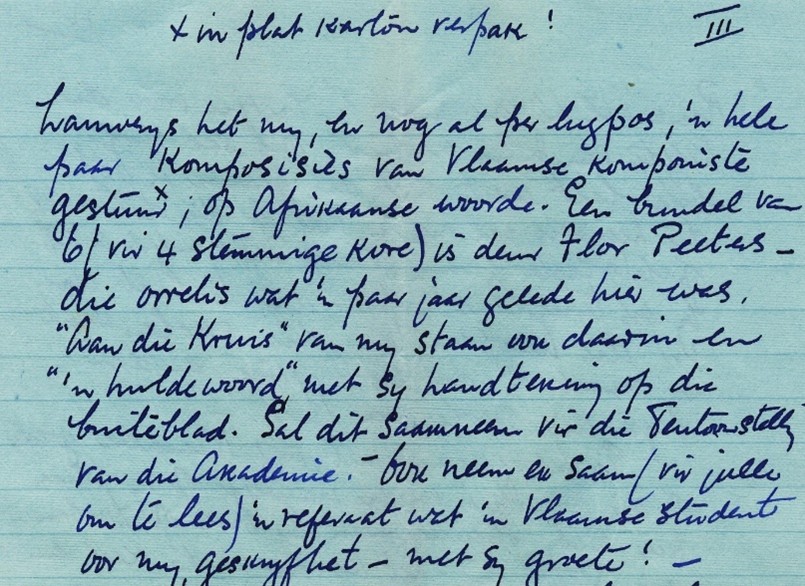 x in plat karton verpak!
III
Lamweys het my, en nog al per lugpos, 'n hele
paar Komposisies van Vlaamse komponiste
gestuur x; op Afrikaanse woorde. Een bundel van
6 (vir 4 stemmige kore) is deur Flor Peeters –
die orrelis wat 'n paar jaar gelede hier was.
"Aan die Kruis" van my staan ook daarin en
"'n huldewoord", met sy handtekening op die
buiteblad. Sal dit saamneem vir die Tentoonstelling
van die Akademie. – Ook neem ek saam (vir julle
om te lees) 'n referaat wat 'n Vlaamse Student
oor my geskryf het – met sy groete! –